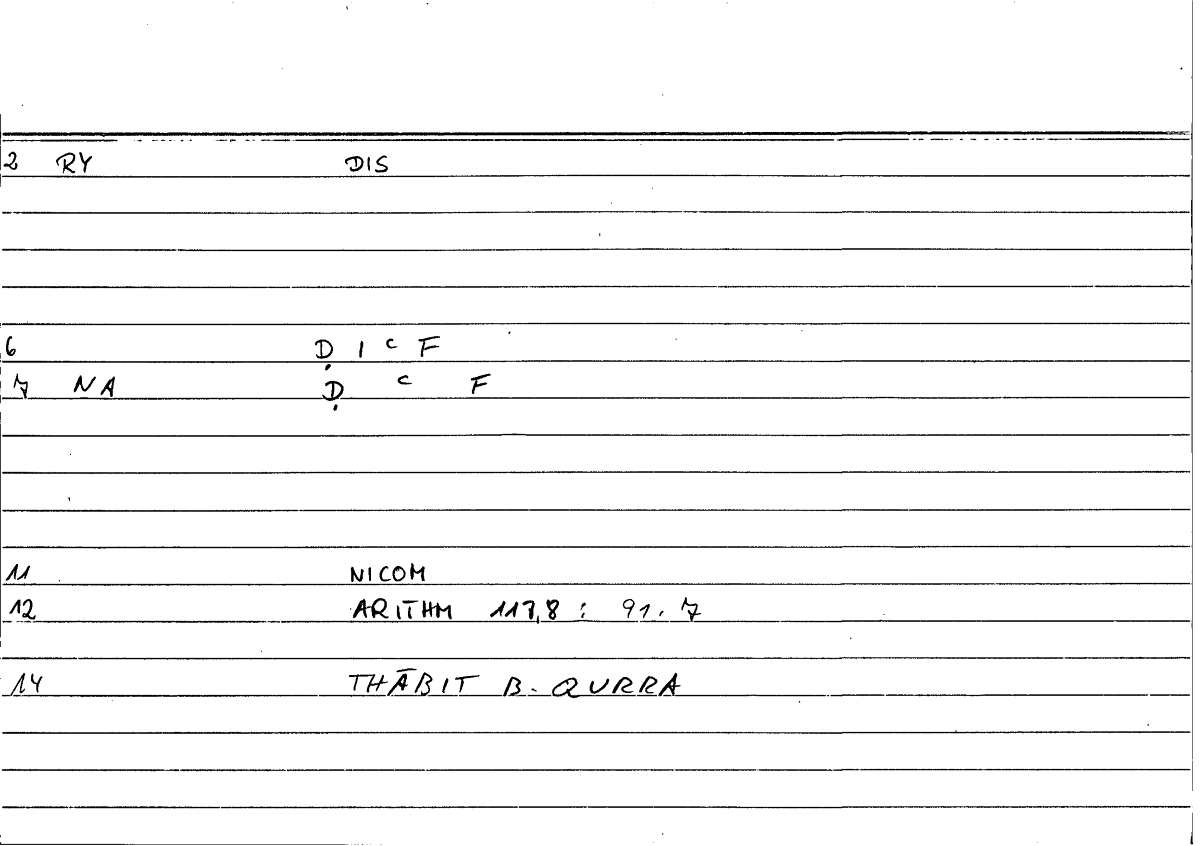 2 RY DIS
6 Ḍ I ᶜ F
7 NA Ḍ ᶜ F
11 NICOM
12 ARITHM 117,8 : 91.7
14 THĀBIT B. QURRA